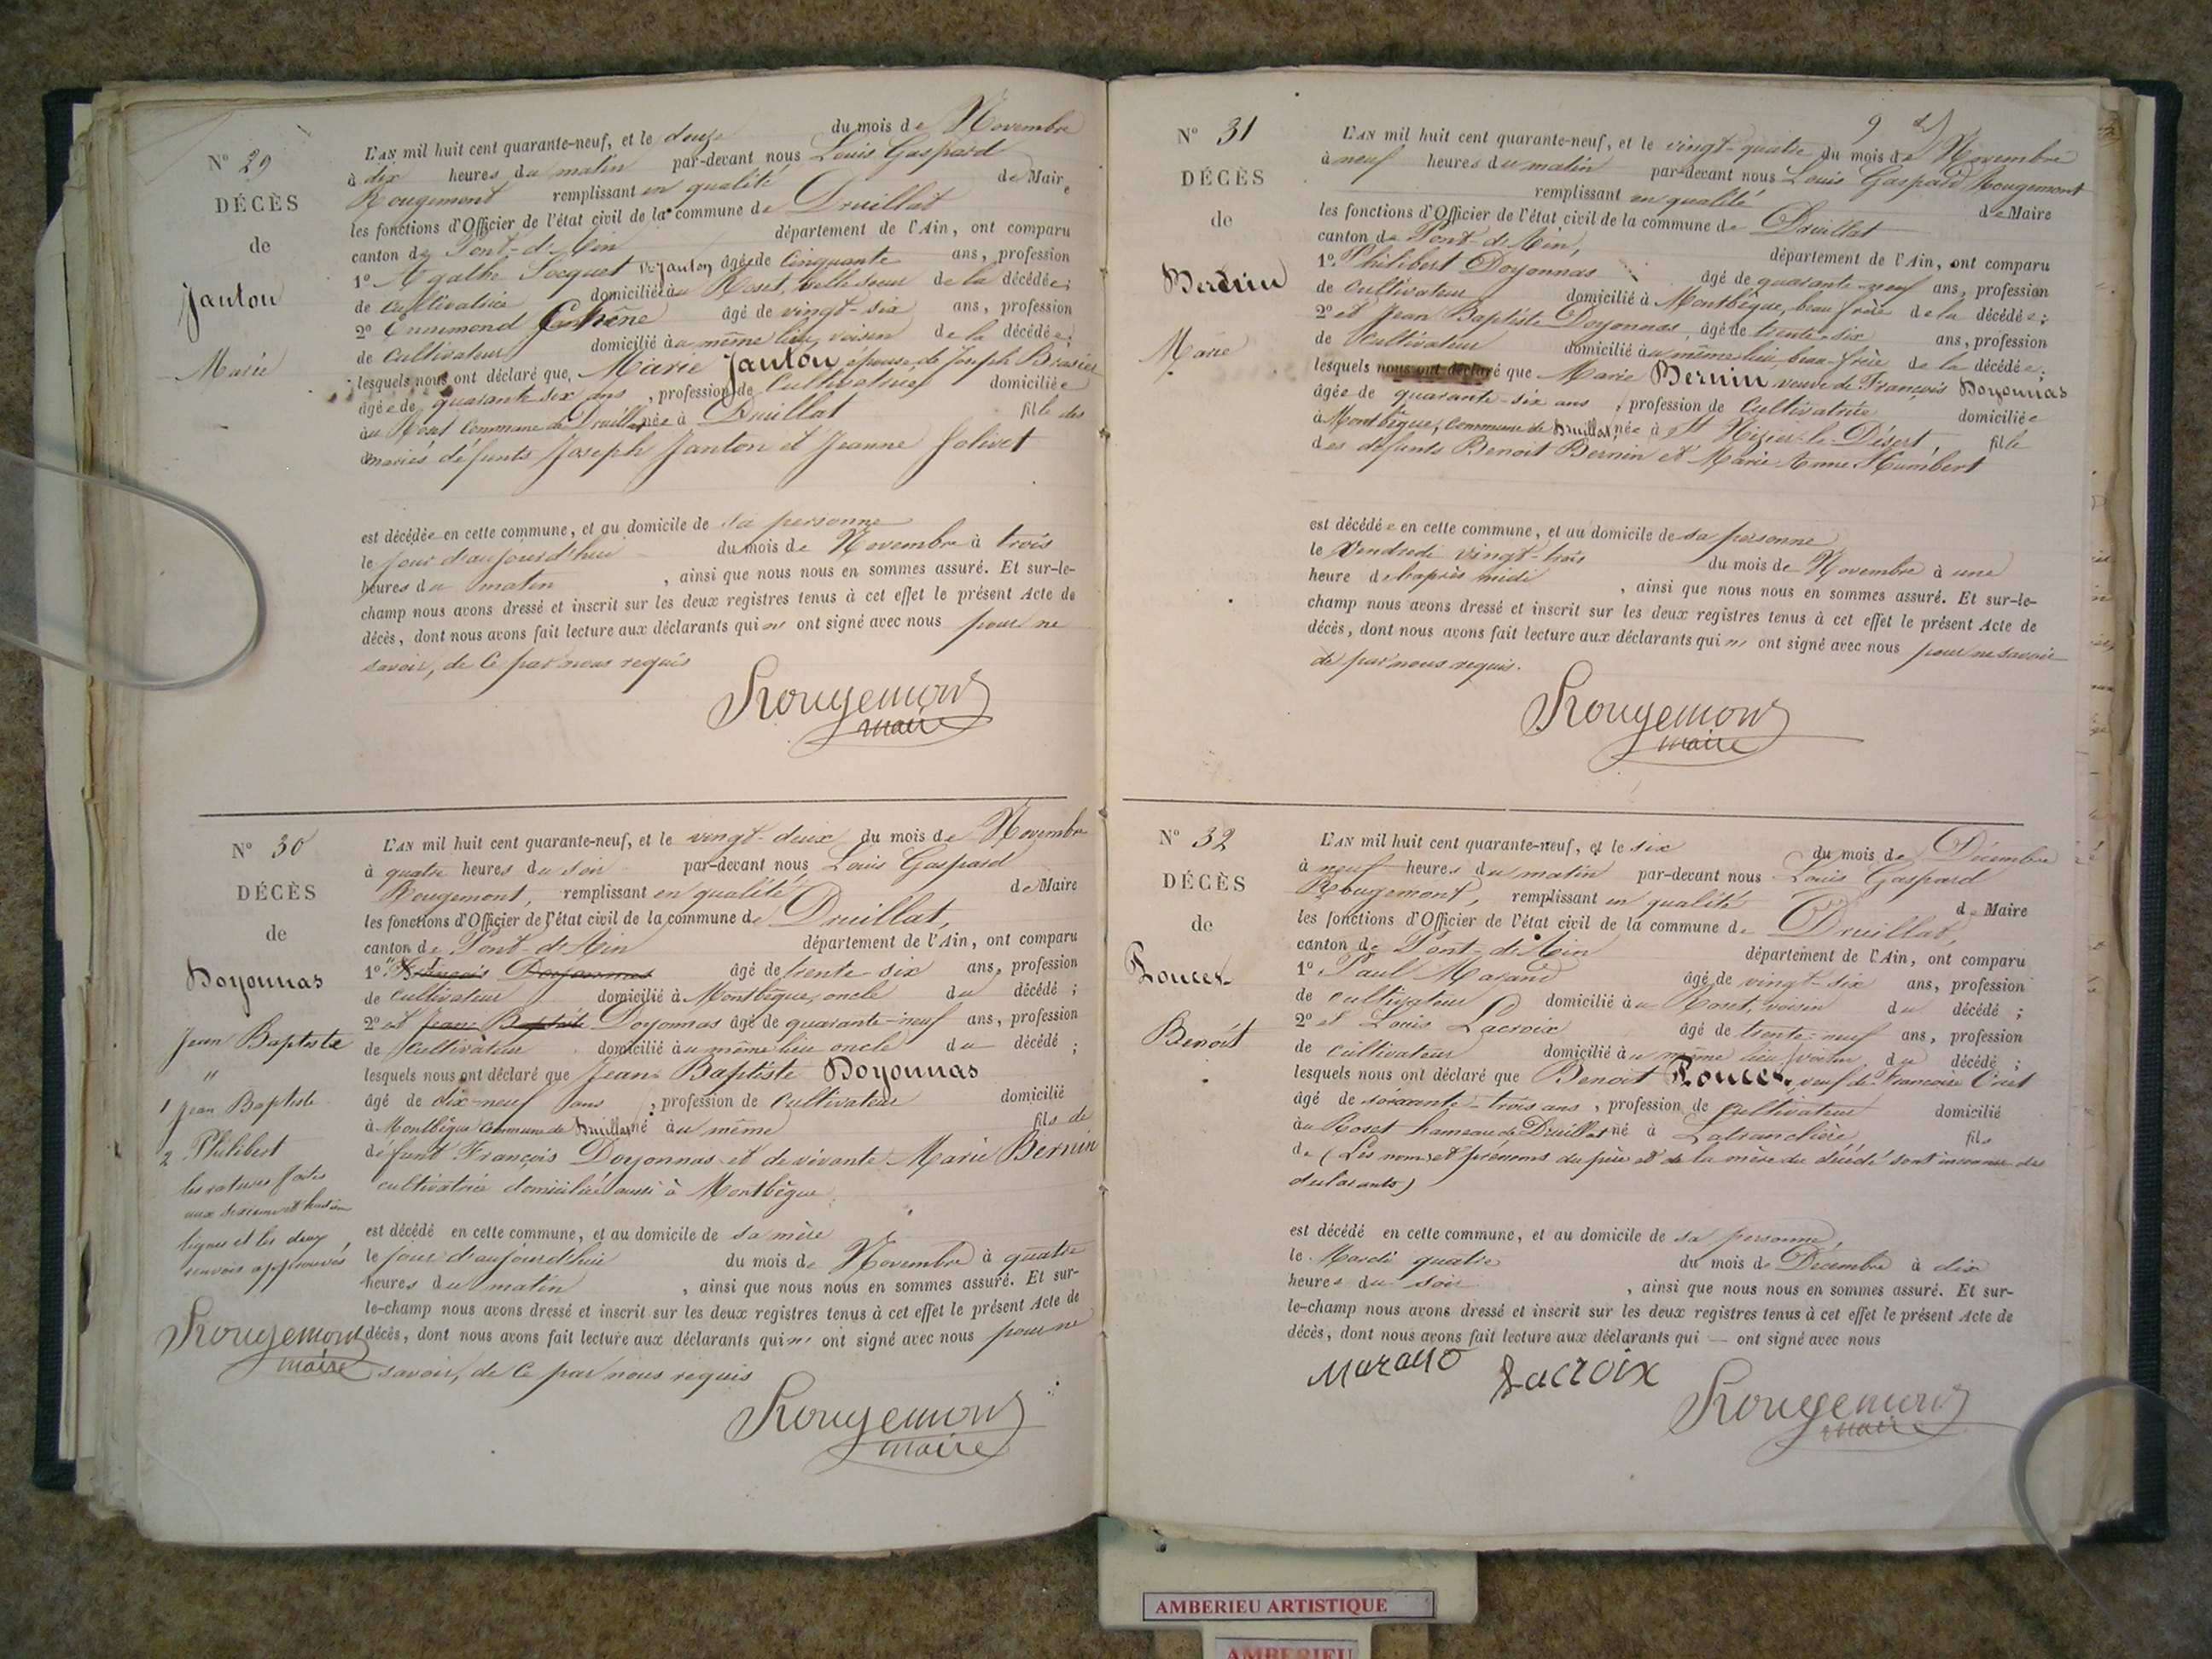 N° 29
DÉCÈS
de
Janton
Marie
L'AN mil huit cent quarante-neuf, et le douze du mois de Novembre
à dix heures du matin par-devant nous Louis Gaspard
Rougemont remplissant en qualité de Maire
les fonctions d'Officier de l'état civil de la commune de Druillat
canton de Pont-d'Ain département de l'Ain, ont comparu
1° Agathe Socquet Ve Janton âgée de Cinquante ans, profession
de Cultivatrice domiciliée au Roset, belle soeur de la décédée;
2° Ennemond âgé de vingt-six ans, profession
de Cultivateur domicilié au même lieu, voisin de la décédée;
lesquels nous ont déclaré que, Marie Janton épouse de Joseph Brasier
âgée de quarante six ans, profession de Cultivatrice domiciliée
au Roset Commune de Druillat, née à Druillat fille des
mariés défunts Joseph Janton et Jeanne Jolivet
est décédée en cette commune, et au domicile de sa personne
le jour d'aujourd'hui du mois de Novembre à trois
heures du matin, ainsi que nous nous en sommes assuré. Et sur-le-
champ nous avons dressé et inscrit sur les deux registres tenus à cet effet le présent Acte de
décès, dont nous avons fait lecture aux déclarants qui n' ont signé avec nous pour ne
savoir, de ce par nous requis
Rougemont
maire
N° 30
DÉCÈS
de
Doyonnas
Jean Baptiste
"
1 Jean Baptiste
2 Philibert
les ratures faites
aux sixième et huitième
lignes et les deux
renvois approuvés
Rougemont
maire
L'AN mil huit cent quarante-neuf, et le vingt-deux du mois de Novembre
à quatre heures du soir par-devant nous Louis Gaspard
Rougemont, remplissant en qualité de Maire
les fonctions d'Officier de l'état civil de la commune de Druillat,
canton de Pont-d'Ain département de l'Ain, ont comparu
1° François Doyonnas âgé de trente-six ans, profession
de Cultivateur domicilié à Montbègue, oncle du décédé;
2° et Jean Baptiste Doyonnas âgé de quarante-neuf ans, profession
de Cultivateur domicilié au même lieu oncle du décédé;
lesquels nous ont déclaré que Jean Baptiste Doyonnas
âgé de dix-neuf ans, profession de Cultivateur domicilié
à Montbègue Commune de Druillat, né au même fils de
défunt François Doyonnas et de vivante Marie Bernin
cultivatrice domiciliée aussi à Montbègue
est décédé en cette commune, et au domicile de sa mère
le jour d'aujourd'hui du mois de Novembre à quatre
heures du matin, ainsi que nous nous en sommes assuré. Et sur-
le-champ nous avons dressé et inscrit sur les deux registres tenus à cet effet le présent Acte de
décès, dont nous avons fait lecture aux déclarants qui n' ont signé avec nous pour ne
savoir, de ce par nous requis
Rougemont
maire
9
N° 31
DÉCÈS
de
Bernin
Marie
L'AN mil huit cent quarante-neuf, et le vingt-quatre du mois de Novembre
à neuf heures du matin par-devant nous Louis Gaspard Rougemont
remplissant en qualité de Maire
les fonctions d'Officier de l'état civil de la commune de Druillat
canton de Pont-d'Ain, département de l'Ain, ont comparu
1° Philibert Doyonnas âgé de quarante-neuf ans, profession
de Cultivateur domicilié à Montbègue, beau frère de la décédée;
2° et Jean Baptiste Doyonnas, âgé de trente-six ans, profession
de Cultivateur domicilié au même lieu, beau-frère de la décédée;
lesquels nous ont déclaré que Marie Bernin veuve de François Doyonnas
âgée de quarante-six ans, profession de Cultivatrice domiciliée
à Montbègue, commune de Druillat, née à St Nizier-le-Désert, fille
des défunts Benoit Bernin et Marie Anne Humbert
est décédée en cette commune, et au domicile de sa personne
le Vendredi vingt-trois du mois de Novembre à une
heure de l'après midi, ainsi que nous nous en sommes assuré. Et sur-le-
champ nous avons dressé et inscrit sur les deux registres tenus à cet effet le présent Acte de
décès, dont nous avons fait lecture aux déclarants qui n' ont signé avec nous pour ne savoir
de par nous requis.
Rougemont
maire
N° 32
DÉCÈS
de
Benoît
L'AN mil huit cent quarante-neuf, et le six du mois de Décembre
à neuf heures du matin par-devant nous Louis Gaspard
Rougemont, remplissant en qualité de Maire
les fonctions d'Officier de l'état civil de la commune de Druillat,
canton de Pont-d'Ain département de l'Ain, ont comparu
1° Paul Marand âgé de vingt-six ans, profession
de cultivateur domicilié au Roset, voisin du décédé;
2° et Louis Lacroix âgé de trente-neuf ans, profession
de cultivateur domicilié au même lieu, voisin du décédé;
lesquels nous ont déclaré que Benoit veuf de Françoise
âgé de soixante-trois ans, profession de Cultivateur domicilié
au Roset hameau de Druillat né à Latranclière, fils
de (Les noms et prénoms du père et de la mère du décédé sont inconnus des
déclarants)
est décédé en cette commune, et au domicile de sa personne,
le Mardi quatre du mois de Décembre à dix
heures du soir, ainsi que nous nous en sommes assuré. Et sur-
le-champ nous avons dressé et inscrit sur les deux registres tenus à cet effet le présent Acte de
décès, dont nous avons fait lecture aux déclarants qui — ont signé avec nous
Marand Lacroix
Rougemont
maire
AMBERIEU ARTISTIQUE
AMBERIEU